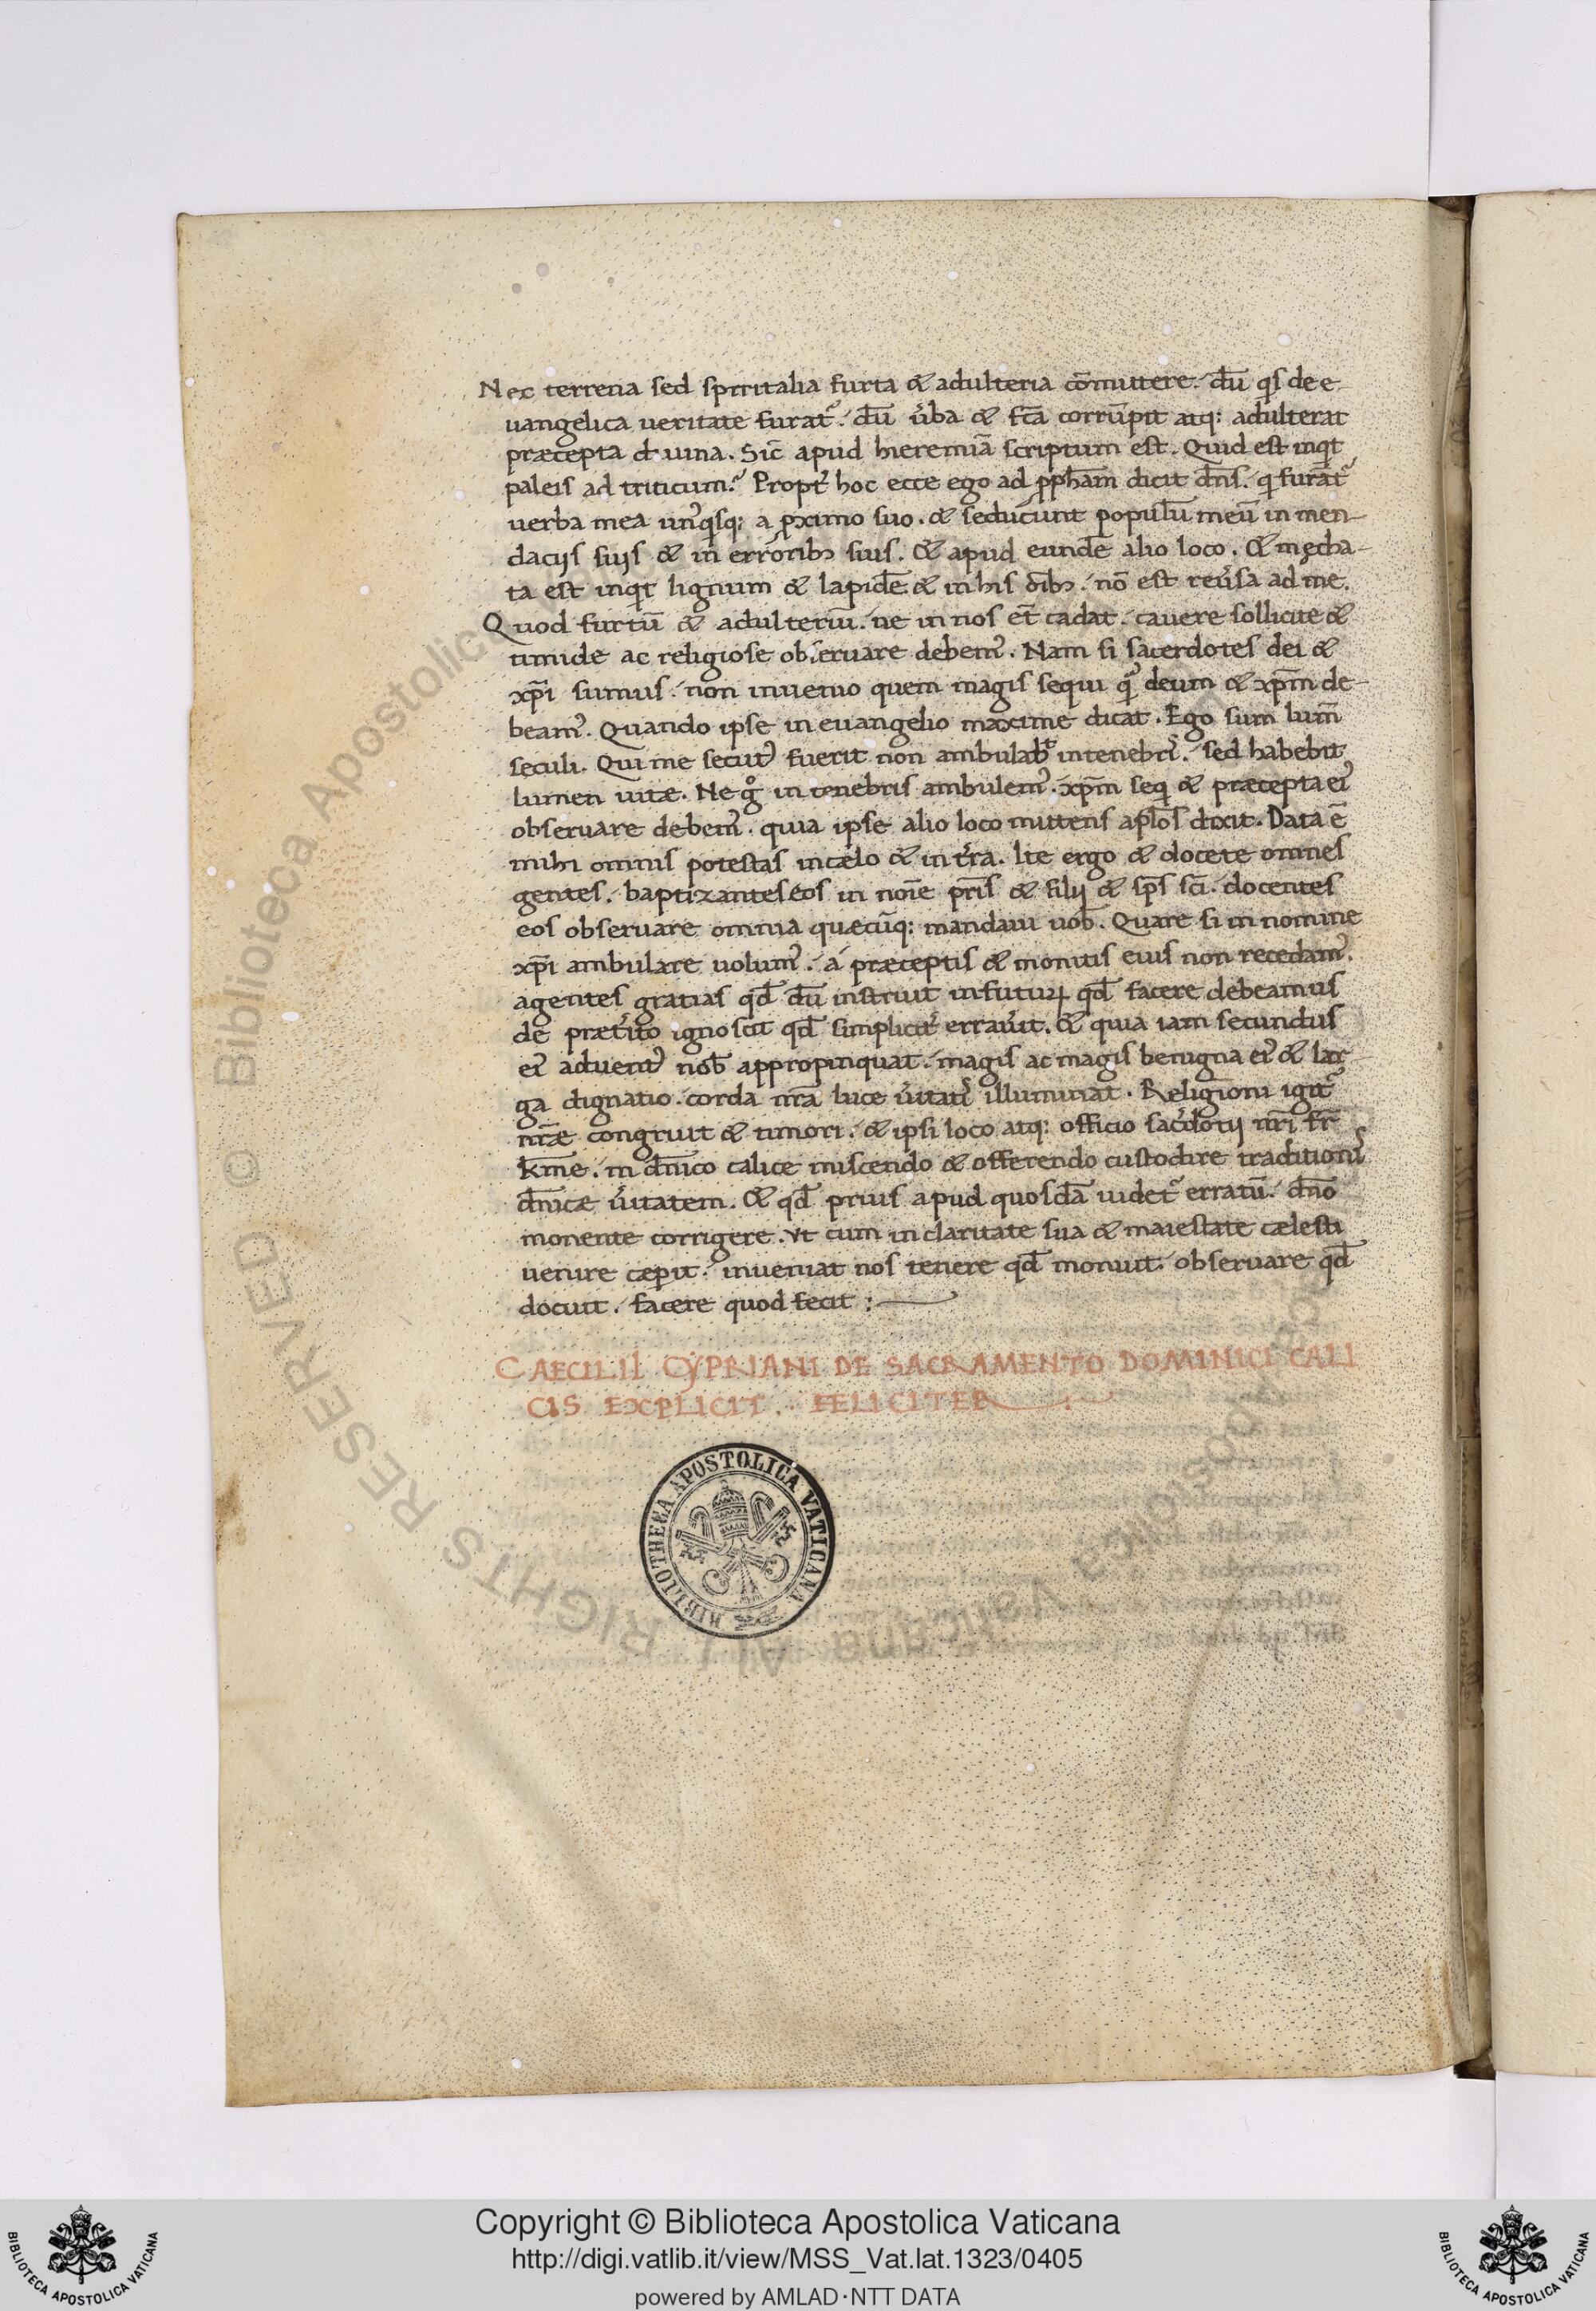 Nec terrena sed spiritalia furta & adulteria cōmittere. dū qͥs de e-
uangelica ueritate furat᷑. dū ůba & fc̄a corrūpit atq; adulterat
præcepta diuina. Sic̄ apud hieremiā scriptum est. Quid est inqͥt
paleis ad triticum? Propt̾ hoc ecce ego ad ꝓph̄am dicit dn̄s. qͥ furāt᷑
uerba mea un᷒qͥsq; a ꝓximo suo. & seducunt populū meū in men-
dacijs suis & in erroribꝫ suis. & apud eundē alio loco. & męcha-
ta est inqͥt lignum & lapidē & in his oīb;. nō est reůsa ad me.
Quod furtū & adulteriū. ne in nos et̄ cadat. cauere sollicite &
timide ac religiose obseruare debem᷒. Nam si sacerdotes dei &
xp̄i sumus. non inuenio quem magis sequi qͣ̄ deum & xp̄m de-
beam᷒. Quando ipse in euangelio maxime dicat. Ego sum lum̄
seculi. Qui me secut᷒ fuerit non ambulab̄ in tenebrͥ. sed habebit
lumen uitæ. Ne gͦ in tenebris ambulem᷒. xp̄m seqͥ & præcepta ei᷒
obseruare debem᷒. quia ipse alio loco mittens apl̄os dixit. Data ē
mihi omnis potestas in cælo & in t̾ra. Ite ergo & docete omnes
gentes. baptizantes eos in noīe pr̄is & filij & sp̄s sc̄i. docentes
eos obseruare omnia quæcūq; mandaui uob̄. Quare si in nomine
xp̄i ambulare uolum᷒. á præceptis & monitis eius non recedam᷒.
agentes gratias qd̄ dū instruit in futuꝝ qd̄ facere debeamus
de præt̾ito ignoscit qd̄ simplicit̾ errauit. & quia iam secundus
ei᷒ aduent᷒ nob̄ appropinquat. magis ac magis benigna ei᷒ & lar-
ga dignatio. corda nr̄a luce ůitatͥ illuminat. Religioni igit᷑
nr̄æ congruit & timori. & ipsi loco atq; officio sac̾dotij nr̄i fr̄
k̄me. in dn̄ico calice miscendo & offerendo custodire traditionͥ
dn̄icæ ůitatem. & qd̄ prius apud quosdā uidet᷑ erratū. dn̄o
monente corrigere. vt cum in claritate sua & maiestate cælesti
uenire cæperit. inueniat nos tenere qd̄ monuit. obseruare qd̄
docuit. facere quod fecit :—
CAECILII CYPRIANI DE SACRAMENTO DOMINICI CALI
CIS EXPLICIT. FELICITER
BIBLIOTHECA APOSTOLICA VATICANA
© Biblioteca Apostolica Vaticana ALL RIGHTS RESERVED
Copyright © Biblioteca Apostolica Vaticana
http://digi.vatlib.it/view/MSS_Vat.lat.1323/0405
powered by AMLAD·NTT DATA
BIBLIOTECA APOSTOLICA VATICANA
BIBLIOTECA APOSTOLICA VATICANA